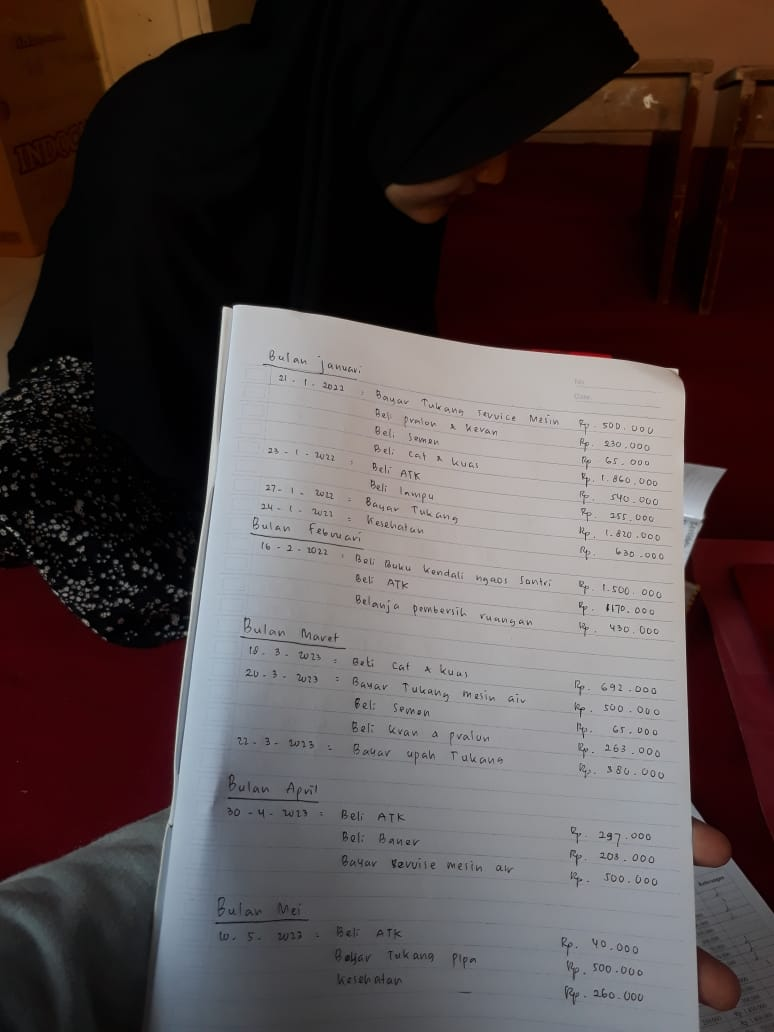 INDOC
No.
Date.
Bulan Januari
21 - 1 - 2022 : Bayar Tukang service Mesin Rp. 500.000
Beli pralon & keran Rp 230.000
Beli Semen Rp 65.000
Beli cat & kuas Rp. 1.860.000
23 - 1 - 2022 : Beli ATK Rp 540.000
Beli lampu Rp 255.000
27 - 1 - 2022 = Bayar Tukang Rp. 1.820.000
24 - 1 - 2022 = Kesehatan Rp. 630.000
Bulan Februari
16 - 2 - 2022 : Beli Buku kendali ngaos santri Rp. 1.500.000
Beli ATK Rp. 1170.000
Belanja pembersih ruangan Rp. 430.000
Bulan Maret
18 - 3 - 2023 = Beli cat & kuas Rp. 692.000
20 - 3 - 2023 = Bayar Tukang mesin air Rp. 500.000
Beli Semen Rp. 65.000
Beli kran & pralon Rp. 263.000
22 - 3 - 2023 = Bayar upah Tukang Rp. 380.000
Bulan April
30 - 4 - 2023 = Beli ATK Rp. 297.000
Beli Baner Rp. 203.000
Bayar servise mesin air Rp. 500.000
Bulan Mei
10. 5. 2023 = Beli ATK Rp. 40.000
Bayar Tukang pipa Rp. 500.000
Kesehatan Rp. 260.000